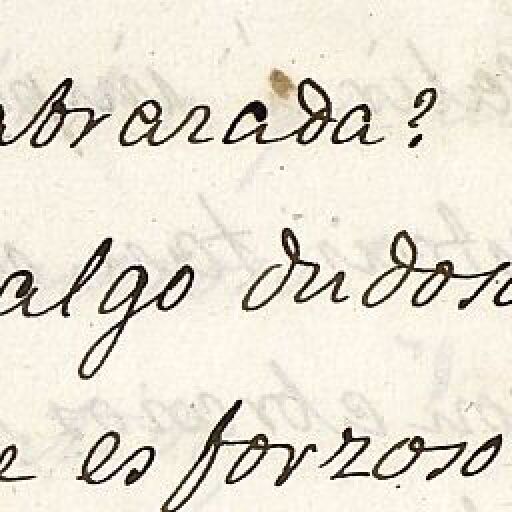 abrazada?
algo dudoso
e es forzoso